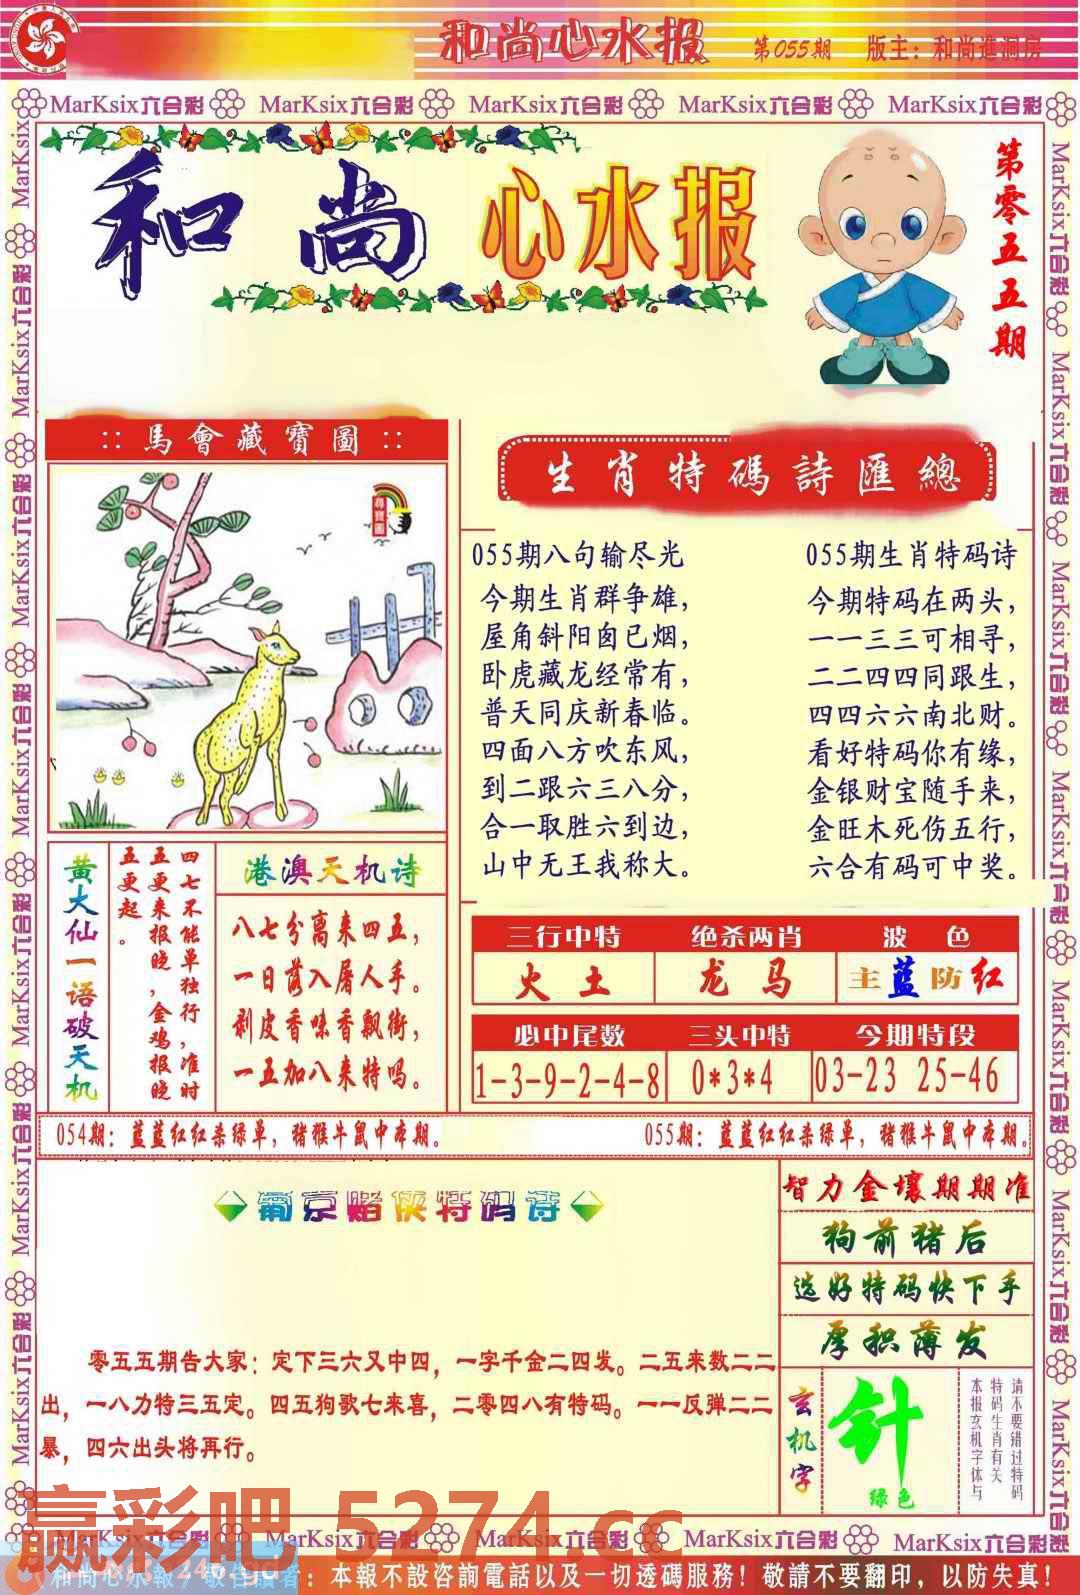 和尚心水报 第055期 版主：和尚進洞房
MarKsix六合彩 MarKsix六合彩 MarKsix六合彩 MarKsix六合彩 MarKsix六合彩
和尚心水报
第零五五期
::馬會藏寶圖::
尋寶圖
生肖特碼詩匯總
055期八句输尽光
今期生肖群争雄，
屋角斜阳囱已烟，
卧虎藏龙经常有，
普天同庆新春临。
四面八方吹东风，
到二跟六三八分，
合一取胜六到边，
山中无王我称大。
055期生肖特码诗
今期特码在两头，
一一三三可相寻，
二二四四同跟生，
四四六六南北财。
看好特码你有缘，
金银财宝随手来，
金旺木死伤五行，
六合有码可中奖。
黄大仙一语破天机
四七不能单独行，准时
五更来报晚，金鸡报晚
五更起。
港澳天机诗
八七分离来四五，
一日落入屠人手。
剥皮香味香飘街，
一五加八来特吗。
三行中特 绝杀两肖 波色
火土 龙马 主蓝防红
必中尾数 三头中特 今期特段
1-3-9-2-4-8 0*3*4 03-23 25-46
054期：蓝蓝红红杀绿单，猪猴牛鼠中本期。
055期：蓝蓝红红杀绿单，猪猴牛鼠中本期。
葡京赌侠特码诗
零五五期告大家：定下三六又中四，一字千金二四发。二五来数二二
出，一八力特三五定。四五狗歌七来喜，二零四八有特码。一一反弹二二
暴，四六出头将再行。
智力金壤期期准
狗前猪后
选好特码快下手
厚积薄发
玄机字
针
绿色
请不要错过特码
特码生肖有关
本报玄机字体与
赢彩吧 5274.cc
MarKsix六合彩 MarKsix六合彩 MarKsix六合彩 MarKsix六合彩 MarKsix六合彩
和尚心水報/敬告讀者：本報不設咨詢電話以及一切透碼服務！敬請不要翻印，以防失真！